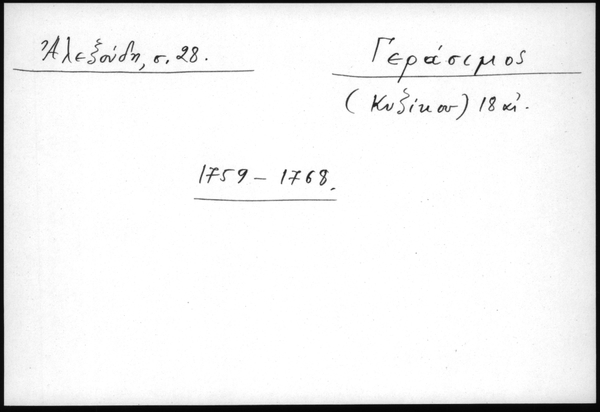 Ἀλεξούδη, σ. 28.
Γεράσιμος
(Κυζίκου) 18 αἰ.
1759 – 1768.